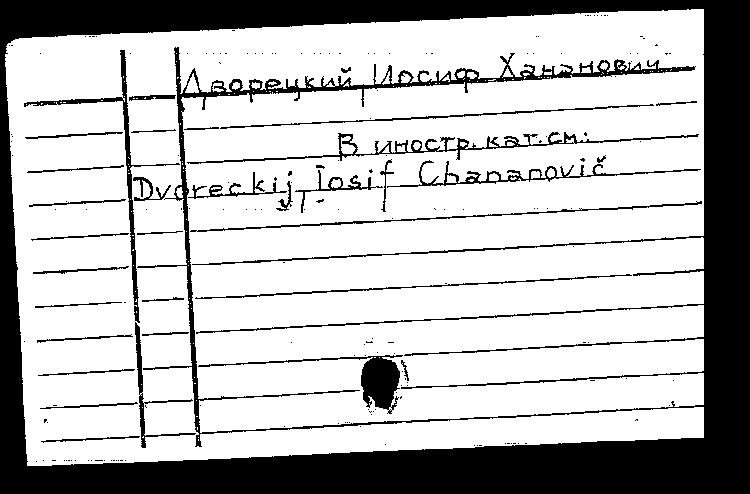 Дворецкий, Иосиф Хананович
В иностр. кат. см.:
Dvoreckij, Iosif Chananovič